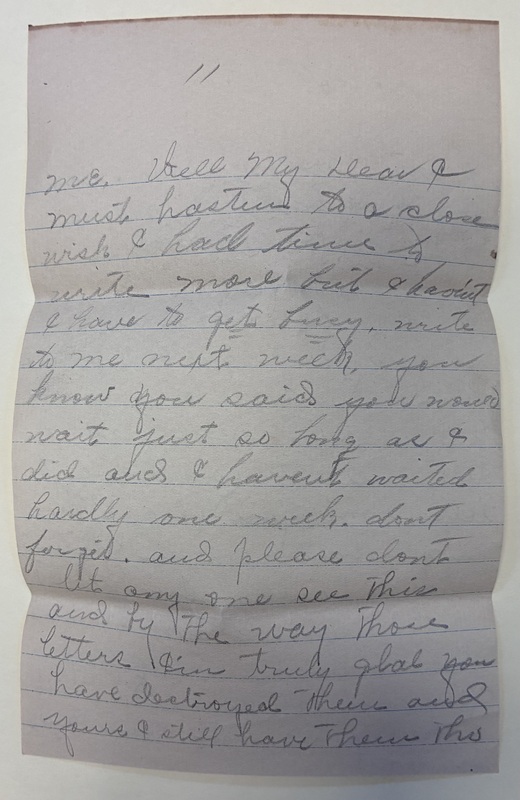 11
me. Well My Dear I
must hasten to a close
wish I had time to
write more but I havent
I have to get busy. write
to me next week, you
know you said you would
wait just so long as I
did and I havent waited
hardly one week. dont
forget. and please dont
let any one see this
and by the way those
letters I'm truly glad you
have destroyed them and
yours I still have them tho